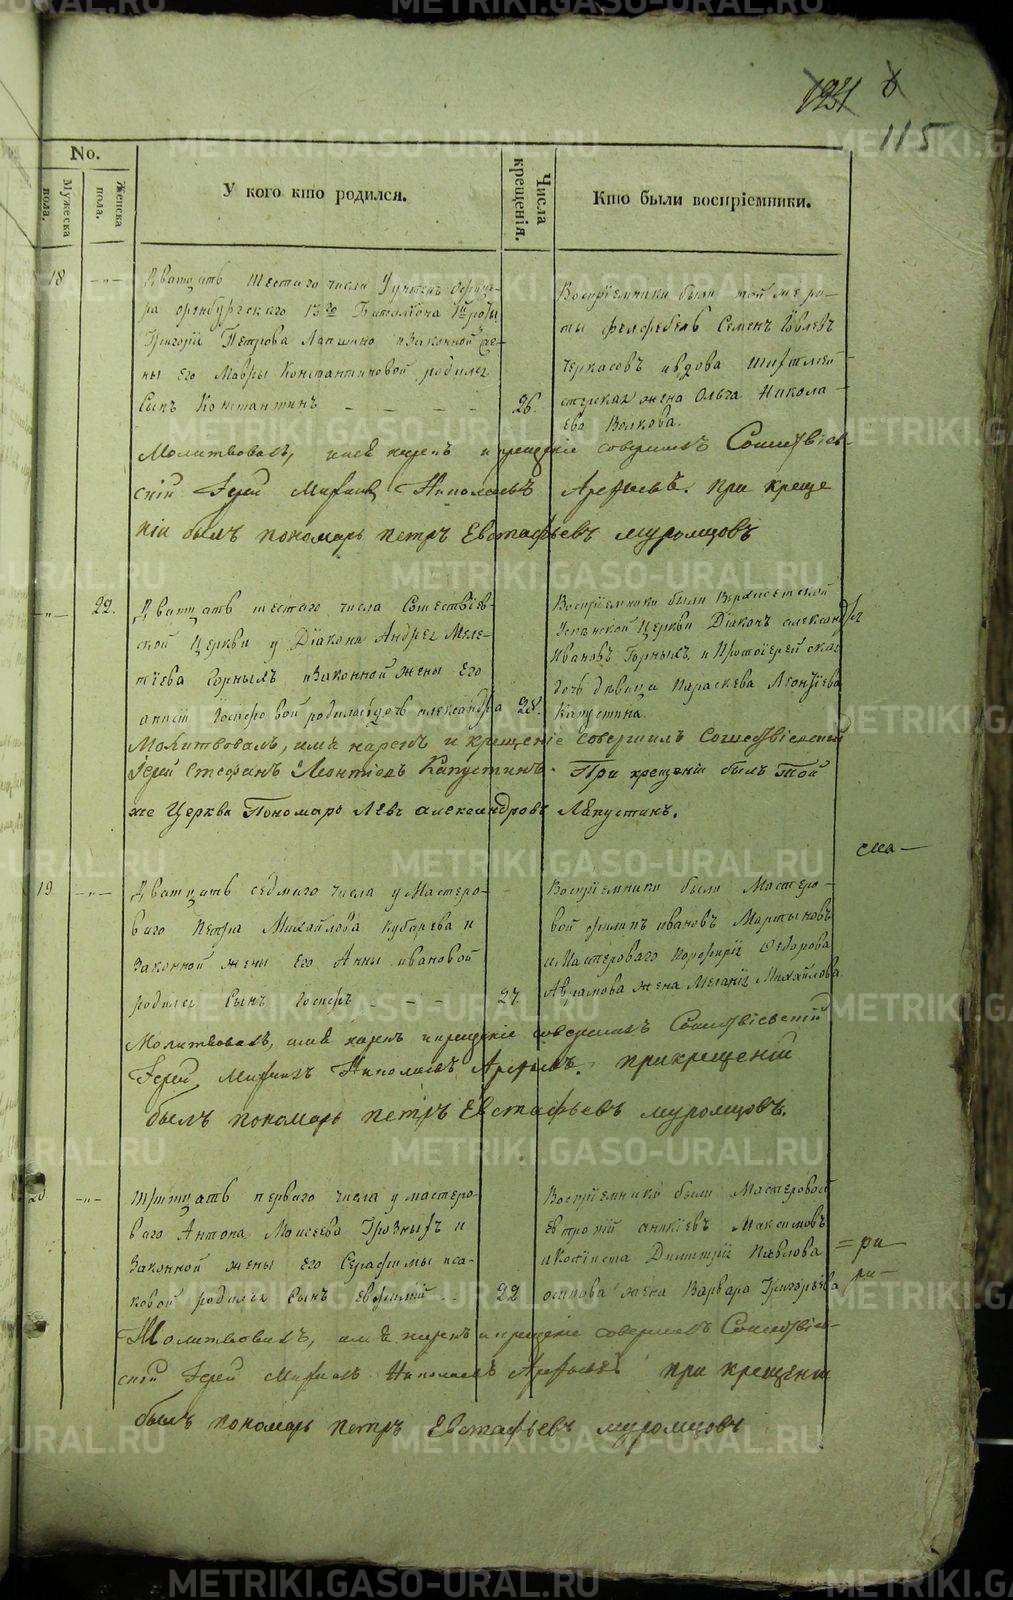 115
No.
Мужеска пола.
Женска пола.
У кого кто родился.
Числа крещенія.
Кто были воспріемники.
18
Дватцать шестаго числа Унтеръ Офице-
ра оренбургскаго 13го Баталіона роты
Григорій Петрова Лапшино изаконной Же-
ны его Мавры Константиновой родился
Сынъ Константинъ
26.
Воспріемники были той же ро-
ты фелдфебель Семенъ
Черкасовъ ивдова
жена Ольга Никола
ева Волкова.
Молитвовалъ, имя нарекъ и крещеніе совершилъ Сошествіев
скій Іерей Михаилъ Николаевъ Арефьевъ. при креще
ніи былъ пономарь петръ Евстафьевъ муромцовъ
22.
Дватцать шестаго числа Сошествіев-
ской Церкви у Діакона Андрея Миле-
тіева Горныхъ изаконной жены его
анны Іосифовой родилась дочь александра
28.
Воспріемники были Верхисетской
Успѣнской Церкви Діаконъ александръ
Ивановъ Горныхъ и Протоіерейская
дочь дѣвица Параскева Леонтіева
Капустина
Молитвовалъ, имя нарекъ и крещеніе совершилъ Сошествіевскій
Іерей Стефанъ Леонтіевъ Капустинъ. При крещеніи былъ той
же Церкви Пономарь Левъ александровъ Лапустинъ.
19
Дватцать седмаго числа у Мастеро-
ваго Петра Михайлова Кубарева и
Законной жены его Анны ивановой
родился Сынъ Іосифъ
27
Воспріемники были Мастеро-
вой филипъ ивановъ Мартыновъ
иМастероваго Порфирій Федорова
Авраамова жена Меланія Михайлова
Молитвовалъ, имя нарекъ икрещеніе совершилъ Сошествіевскій
Іерей Михаилъ Николаевъ Арефьевъ. прикрещеніи
былъ пономарь петръ Евстафьевъ муромцовъ.
20
Тритцать перваго числа у мастеро-
ваго Антона Моисеева Грозныхъ и
Законной жены его Серафимы иса-
ковой родился Сынъ евфимій
22
Воспріемники были Мастеровой
аникіевъ Максимовъ
Димитрія Павлова
осипова жена Варвара Григорьева
Молитвовалъ, имя нарекъ и крещеніе совершилъ Сошествіев-
скій Іерей Михаилъ Николаевъ Арефьевъ при крещеніи
былъ пономарь петръ Евстафьевъ муромцовъ
METRIKI.GASO-URAL.RU